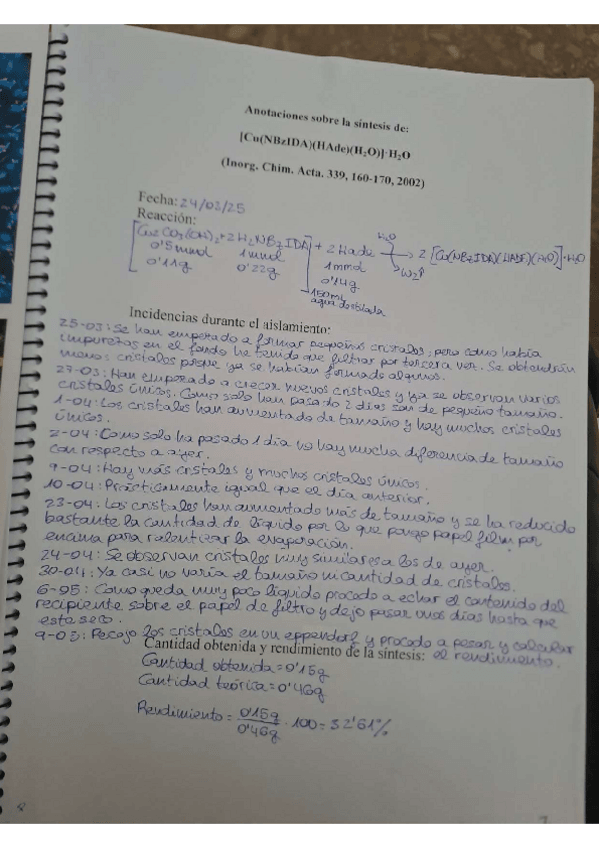 Anotaciones sobre la síntesis de:
[Cu(NBzIDA)(HAde)(H₂O)]·H₂O
(Inorg. Chim. Acta. 339, 160-170, 2002)
Fecha: 24/03/25
Reacción:
[Cu2CO3(OH)2 + 2H2NBzIDA] + 2Hade → 2[Cu(NBzIDA)(HADE)(H2O)]·H2O
H2O
0'5mmol 1mmol 1mmol CO2↑
0'11g 0'22g 0'14g
150mL
agua destilada
Incidencias durante el aislamiento:
25-03: Se han empezado a formar pequeños cristales, pero como había
impurezas en el fondo he tenido que filtrar por tercera vez. Se obtendrán
menos cristales porque ya se habían formado algunos.
27-03: Han empezado a crecer nuevos cristales y ya se observan varios
cristales únicos. Como solo han pasado 2 días son de pequeño tamaño.
1-04: Los cristales han aumentado de tamaño y hay muchos cristales
únicos.
2-04: Como solo ha pasado 1 día no hay mucha diferencia de tamaño
con respecto a ayer.
9-04: Hay más cristales y muchos cristales únicos.
10-04: Prácticamente igual que el día anterior.
23-04: Los cristales han aumentado más de tamaño y se ha reducido
bastante la cantidad de líquido por lo que pongo papel film por
encima para ralentizar la evaporación.
24-04: Se observan cristales muy similares a los de ayer.
30-04: Ya casi no varía el tamaño ni cantidad de cristales.
6-05: Como queda muy poco líquido procedo a echar el contenido del
recipiente sobre el papel de filtro y dejo pasar unos días hasta que
este seco.
9-05: Recojo los cristales en un eppendorf y procedo a pesar y calcular
Cantidad obtenida y rendimiento de la síntesis: el rendimiento.
Cantidad obtenida = 0'15g
Cantidad teórica = 0'46g
Rendimiento = 0'15g / 0'46g · 100 = 32'61%